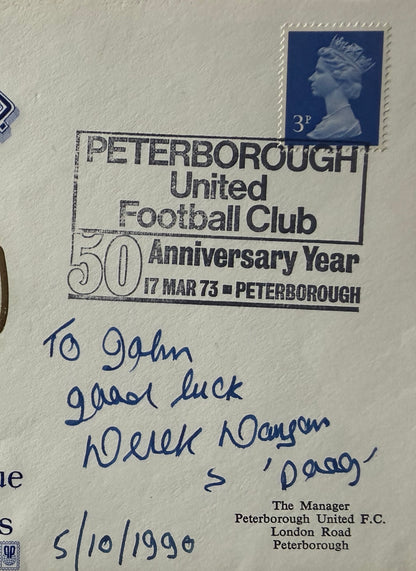 3P
PETERBOROUGH
United
Football Club
50 Anniversary Year
17 MAR 73 PETERBOROUGH
To John
good luck
Derek Dougan
& 'Doog'
ue
s
5/10/1990
The Manager
Peterborough United F.C.
London Road
Peterborough